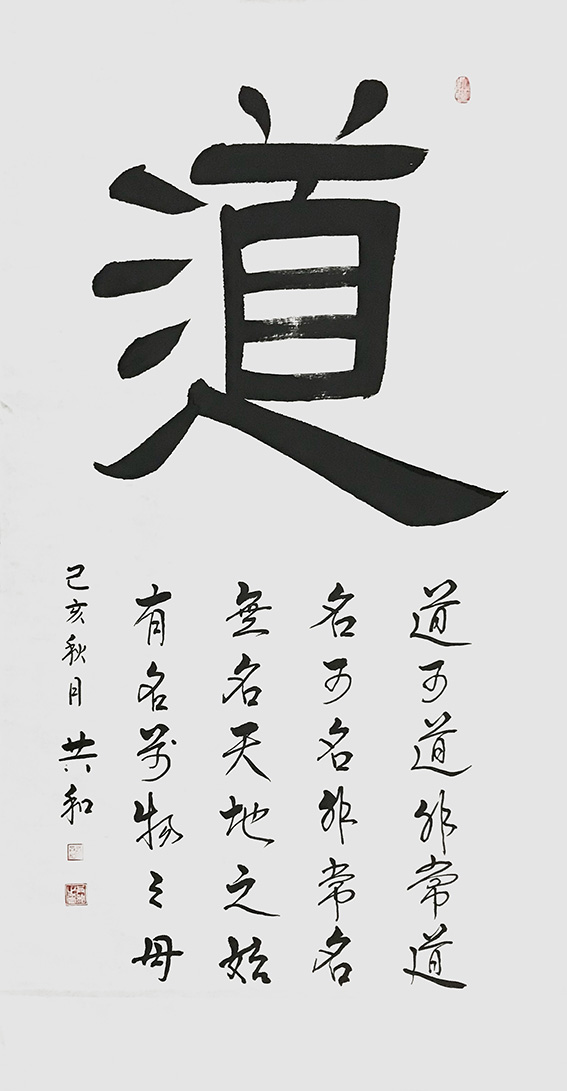 道
道可道非常道
名可名非常名
無名天地之始
有名萬物之母
己亥秋月 共和